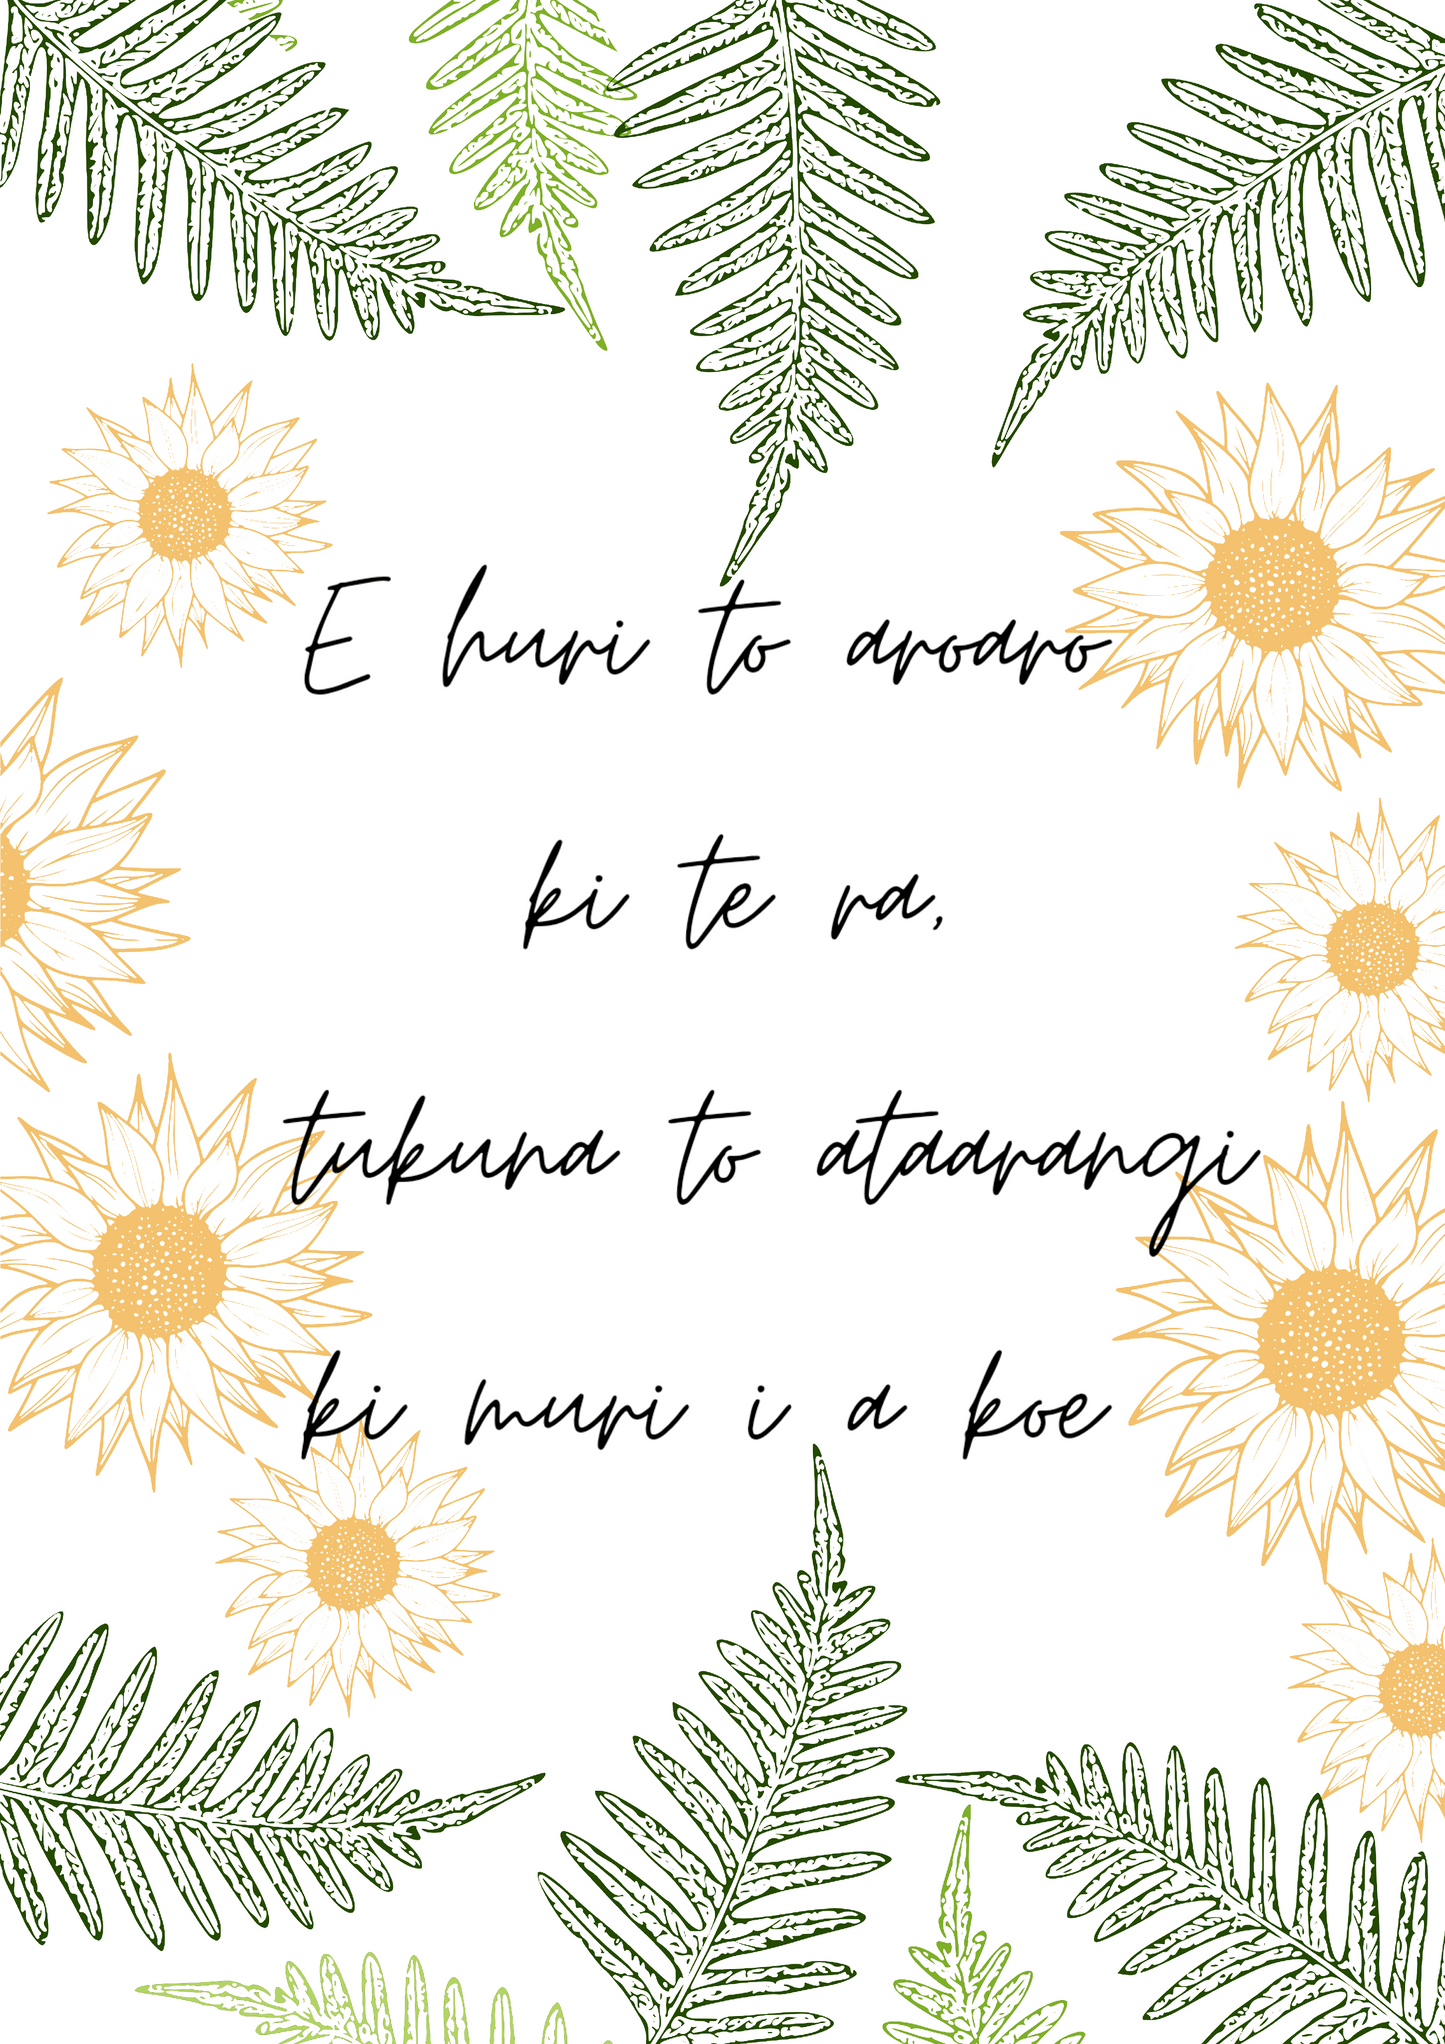 E huri to aroaro
ki te ra,
tukuna to ataarangi
ki muri i a koe